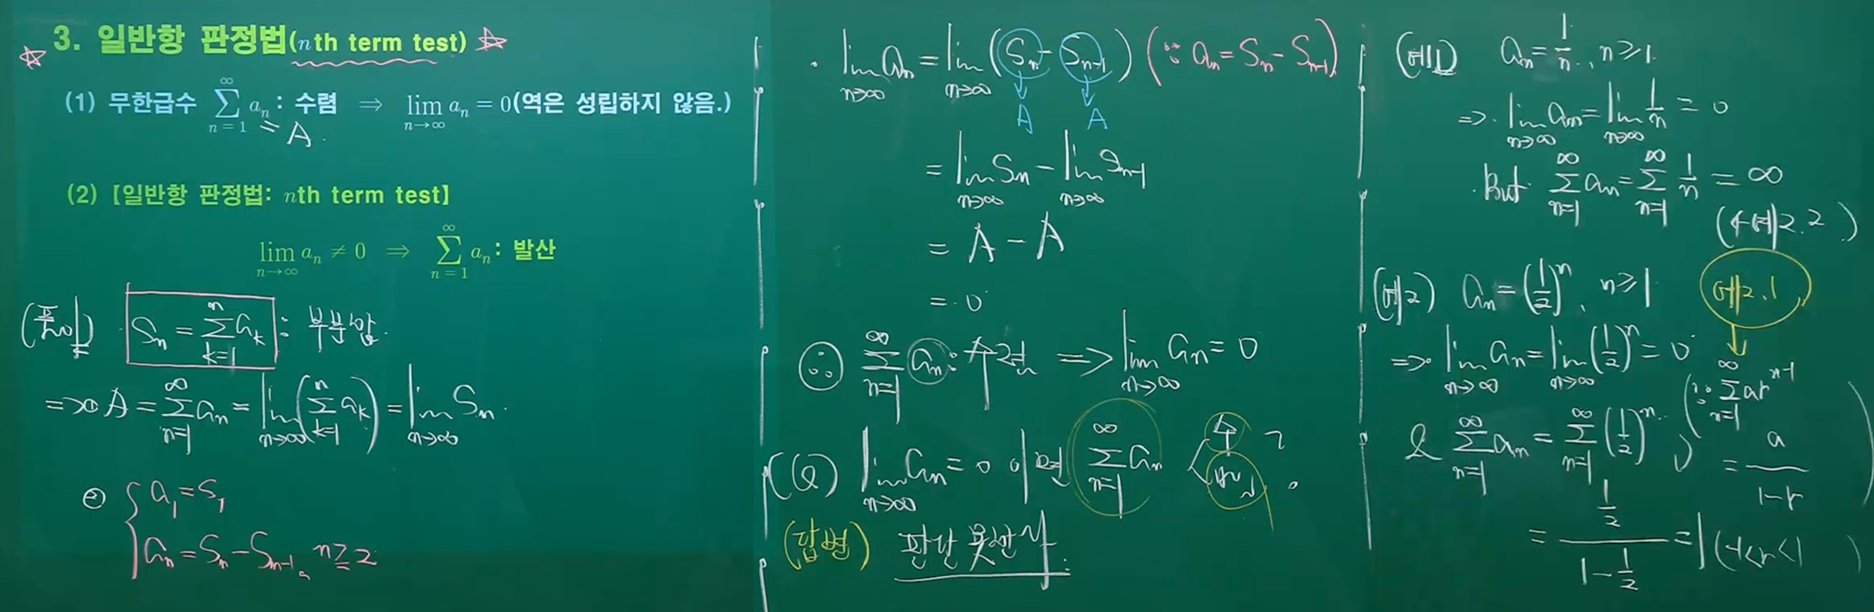 3. 일반항 판정법(nth term test)
(1) 무한급수 \sum_{n=1}^{\infty} a_n : 수렴 ⇒ \lim_{n→∞} a_n = 0(역은 성립하지 않음.)
= A
(2) [일반항 판정법: nth term test]
\lim_{n→∞} a_n ≠ 0 ⇒ \sum_{n=1}^{\infty} a_n : 발산
(풀이) S_n = \sum_{k=1}^{n} a_k : 부분합
⇒ ① A = \sum_{n=1}^{∞} a_n = \lim_{n→∞} (\sum_{k=1}^{n} a_k) = \lim_{n→∞} S_n.
② { a_1 = S_1
a_n = S_n - S_{n-1}, n ≥ 2
· \lim_{n→∞} a_n = \lim_{n→∞} (S_n - S_{n-1}) (∵ a_n = S_n - S_{n-1})
A A
= \lim_{n→∞} S_n - \lim_{n→∞} S_{n-1}
= A - A
= 0
∴ \sum_{n=1}^{∞} a_n : 수렴 ⇒ \lim_{n→∞} a_n = 0
(Q) \lim_{n→∞} a_n = 0 이면 \sum_{n=1}^{∞} a_n < 수 발산 ?
(답변) 판단 못한다.
(예1) a_n = \frac{1}{n}, n ≥ 1.
⇒ \lim_{n→∞} a_n = \lim_{n→∞} \frac{1}{n} = 0
But \sum_{n=1}^{∞} a_n = \sum_{n=1}^{∞} \frac{1}{n} = ∞
(예2.2)
(예2) a_n = (\frac{1}{2})^n, n ≥ 1 예2.1
⇒ \lim_{n→∞} a_n = \lim_{n→∞} (\frac{1}{2})^n = 0
& \sum_{n=1}^{∞} a_n = \sum_{n=1}^{∞} (\frac{1}{2})^n, (∵ \sum_{n=1}^{∞} ar^{n-1}
= \frac{a}{1-r}
= \frac{\frac{1}{2}}{1-\frac{1}{2}} = 1 (-1<r<1)